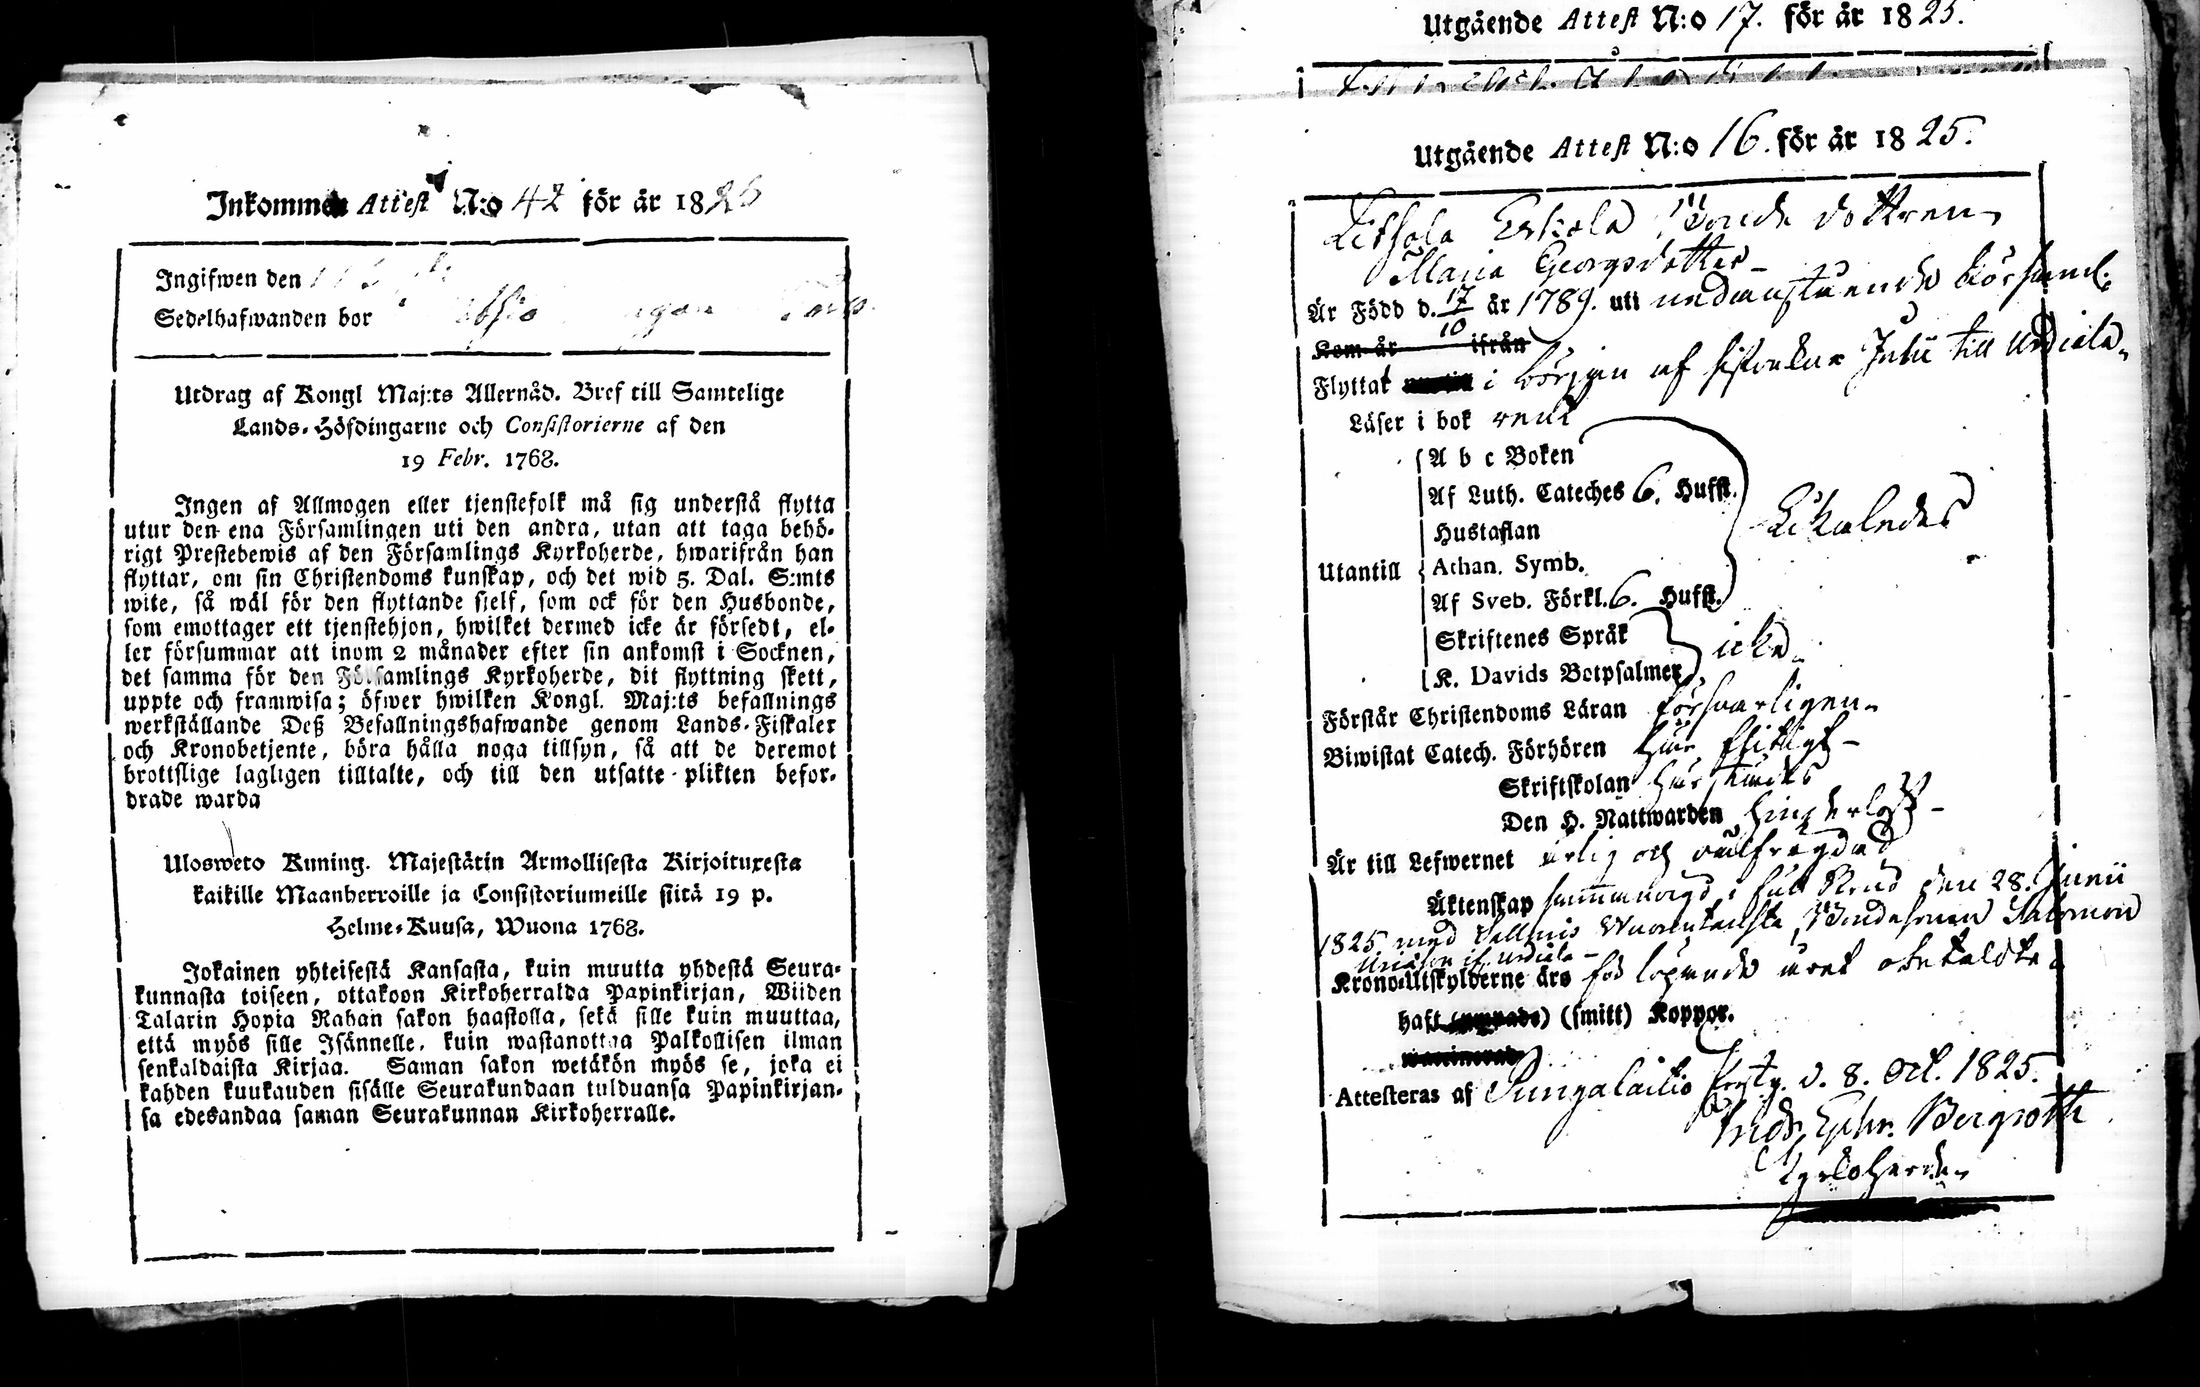 Inkommen Attest N:o 42 för år 1825
Ingifwen den
Sedelhafwanden bor
Utdrag af Kongl Maj:ts Allernåd. Bref till Samtelige
Lands-Höfdingarne och Consistorierne af den
19 Febr. 1768.
Ingen af Allmogen eller tjenstefolk må sig understå flytta
utur den ena Församlingen uti den andra, utan att taga behö-
rigt Prestebewis af den Församlings Kyrkoherde, hwarifrån han
flyttar, om sin Christendoms kunskap, och det wid 5. Dal. S:mts
wite, så wäl för den flyttande sjelf, som ock för den Husbonde,
som emottager ett tjenstehjon, hwilket dermed icke är försedt, el-
ler försummar att inom 2 månader efter sin ankomst i Socknen,
det samma för den Församlings Kyrkoherde, dit flyttning skett,
uppte och framwisa; öfwer hwilken Kongl. Maj:ts befallnings
werkställande Deß Befallningshafwande genom Lands-Fiskaler
och Kronobetjente, böra hålla noga tillsyn, så att de deremot
brottslige lagligen tilltalte, och till den utsatte plikten befor-
drade warda
Ulosweto Kuning. Majestätin Armollisesta Kirjoituxesta
kaikille Maanherroille ja Consistoriumeille siitä 19 p.
Helme-Kuusa, Wuona 1768.
Jokainen yhteisestä Kansasta, kuin muutta yhdestä Seura-
kunnasta toiseen, ottakoon Kirkoherralda Papinkirjan, Wiiden
Talarin Hopia Rahan sakon haastolla, sekä sille kuin muuttaa,
että myös sille Isännelle, kuin wastanottaa Palkollisen ilman
senkaldaista Kirjaa. Saman sakon wetäkön myös se, joka ei
kahden kuukauden sisälle Seurakundaan tulduansa Papinkirjan-
sa edesandaa saman Seurakunnan Kirkoherralle.
Utgående Attest N:o 17. för år 1825.
Utgående Attest N:o 16. för år 1825.
Eskola Bonde dottren
Maria Georgsdotter
Är Född d. 17/10 år 1789. uti nedanstående Församl:
Kom år ifrån
Flyttat i början af sistledne Julii till Urdiala
Läser i bok rent
A b c Boken
Af Luth. Cateches 6. Hufst.
Hustaflan
Utantill Athan. Symb.
Af Sveb. Förkl. 6. Hufst.
Likaledes
Skriftenes Språk
K. Davids Botpsalmer
icke
Förstår Christendoms Läran försvarligen
Biwistat Catech. Förhören här flitigt
Skriftskolan härstädes
Den H. Nattwarden hinderlöst
Är till Lefwernet ärlig och välfrägdad
Äktenskap sammanvigd i full Brud den 28. Junii
1825 med Bondesonen Salomon
Urdiala
Krono-Utskylderne äro för löpande året obetaldte
haft (smitt) Koppor.
Attesteras af Pungalaitio Prestg. d. 8. Oct. 1825.
And. Ephr. Bergroth
Kyrkoherde